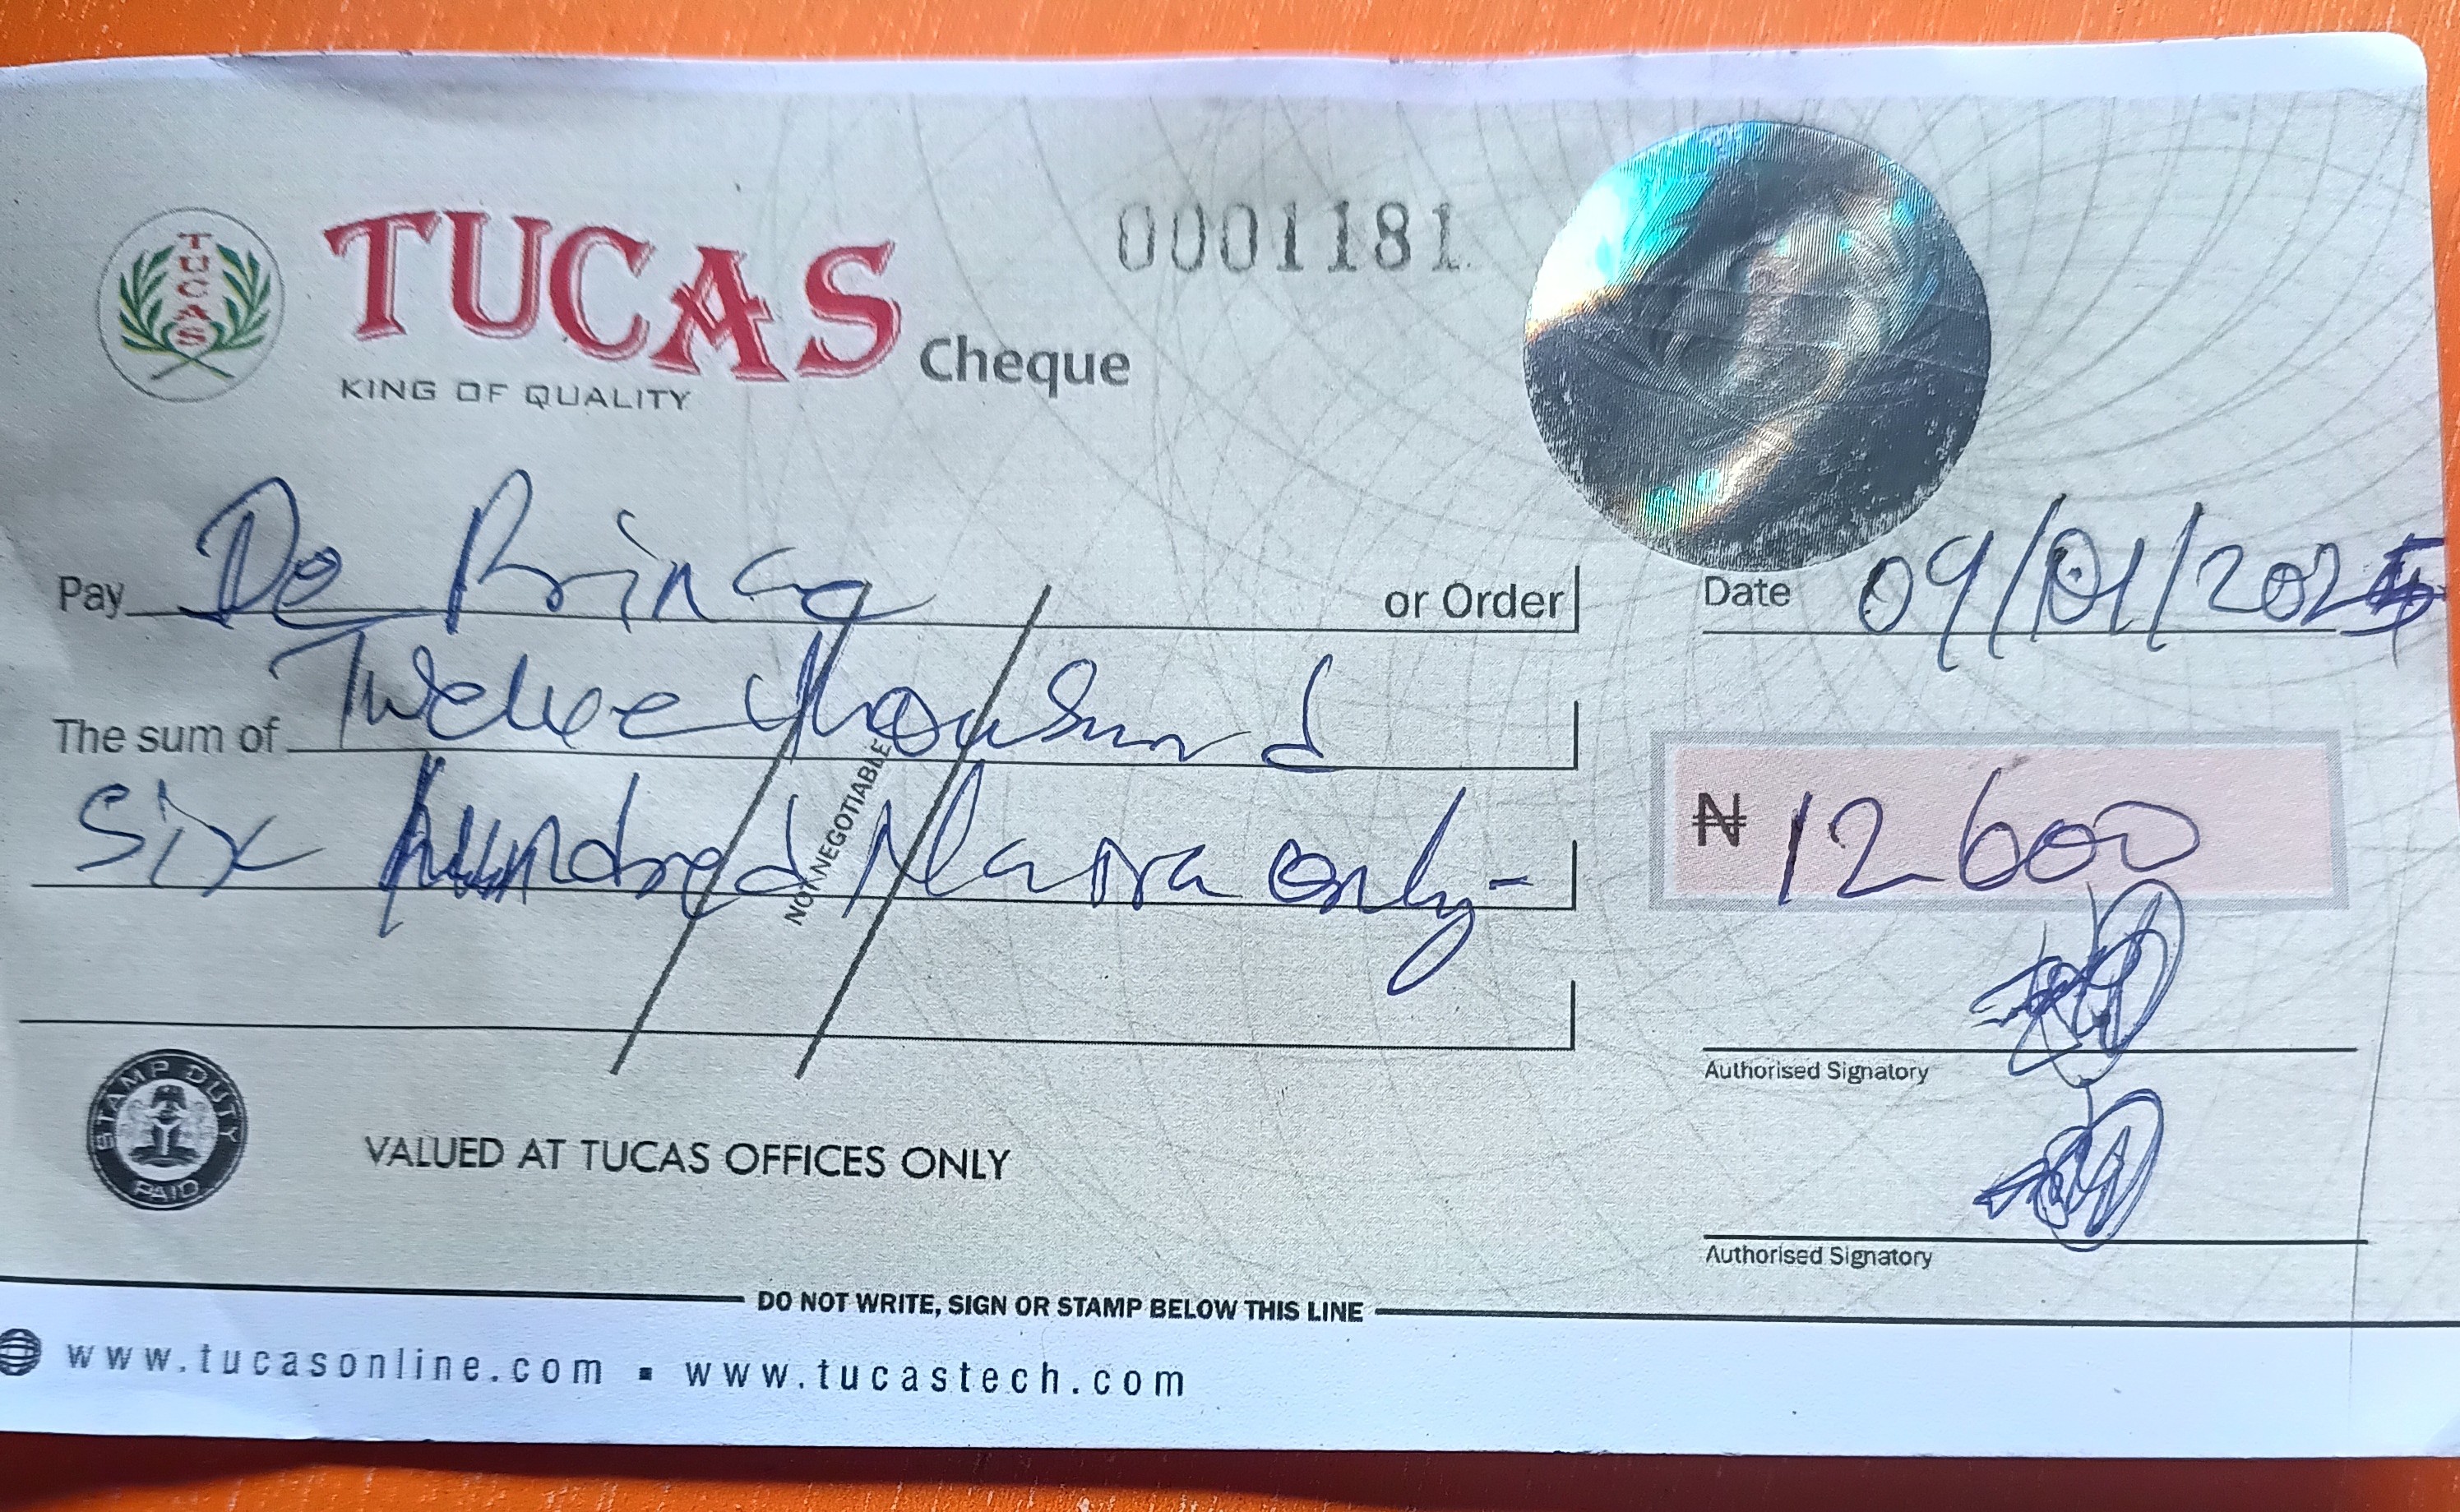 TUCAS
TUCAS Cheque
KING OF QUALITY
0001181
Pay De Prince or Order
Date 09/01/2025
The sum of Twelve thousand
six hundred Naira only-
₦ 12600
NOT NEGOTIABLE
Authorised Signatory
Authorised Signatory
STAMP DUTY
PAID
VALUED AT TUCAS OFFICES ONLY
DO NOT WRITE, SIGN OR STAMP BELOW THIS LINE
www.tucasonline.com ▪ www.tucastech.com